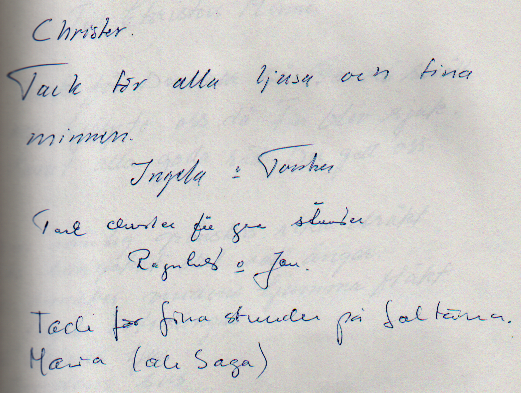 Christer.
Tack för alla ljusa och fina
minnen.
Ingela o Torsten
Tack Christer för goa stunder
Ragnhild o Jan.
Tack för fina stunder på
Maria (och Saga)